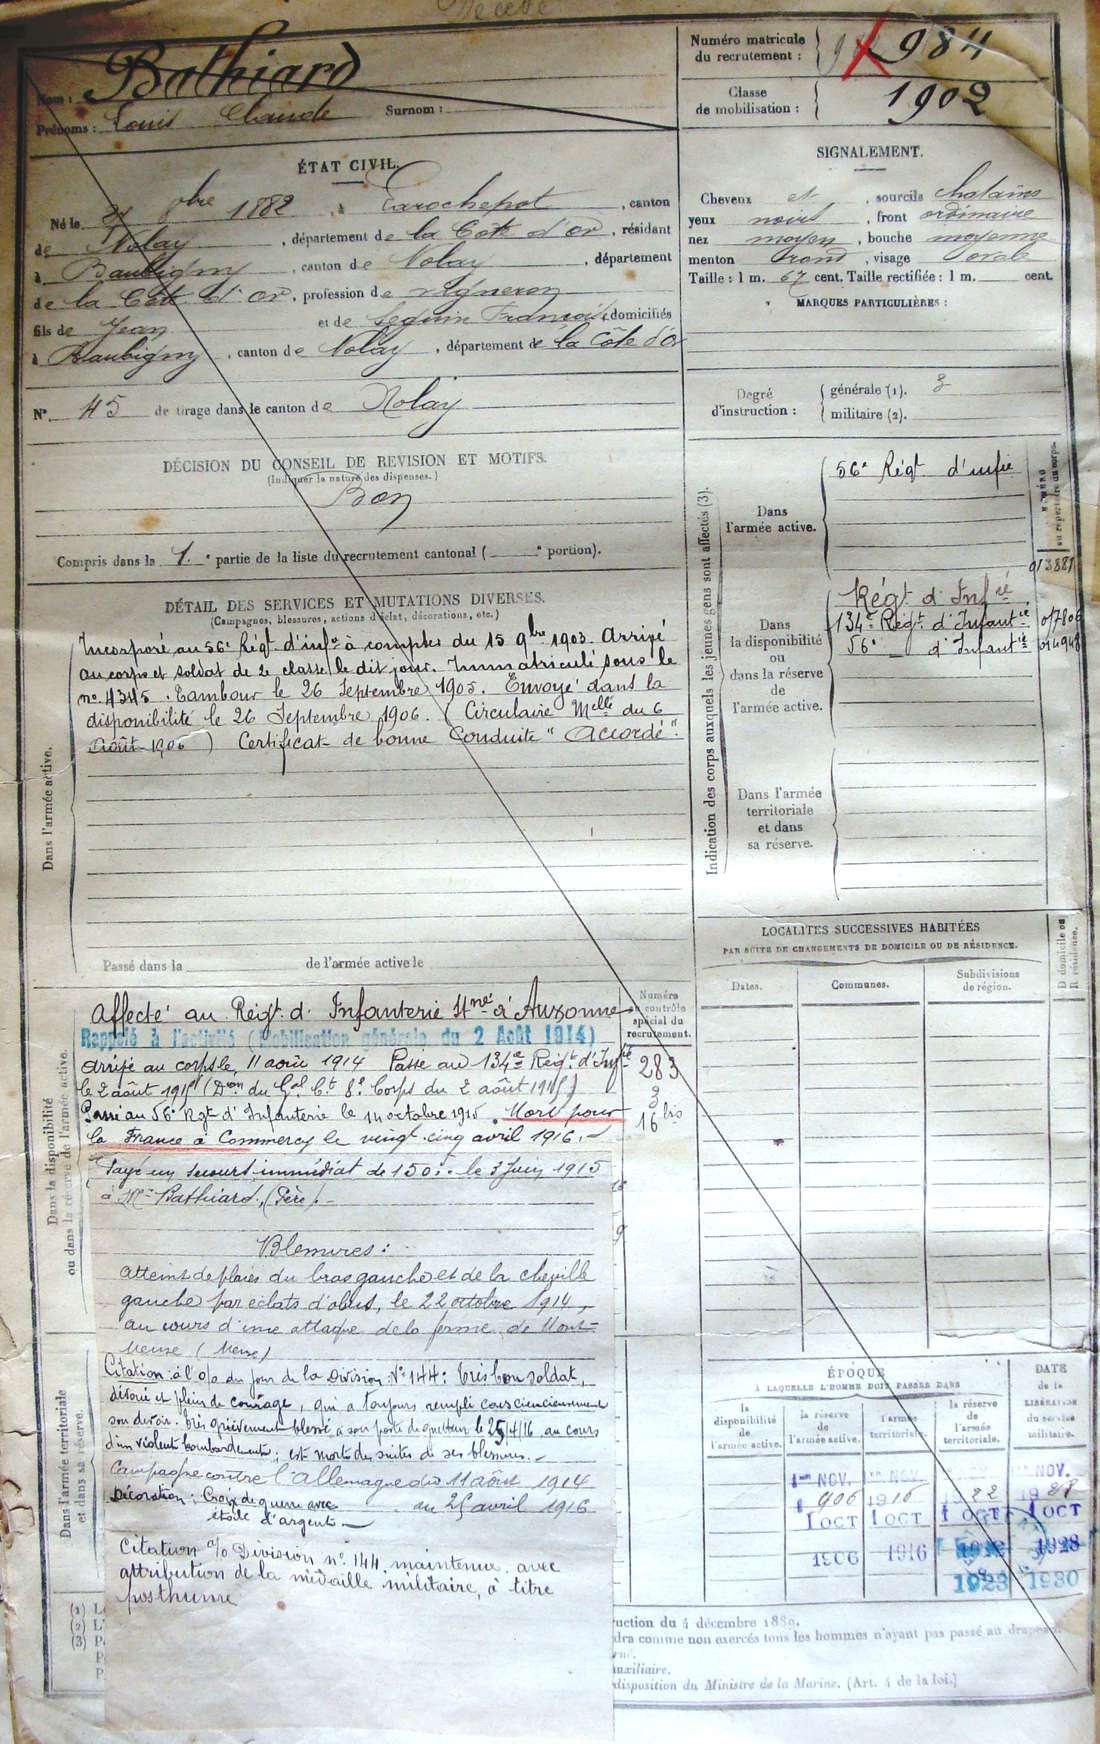 Décédé
Nom : Bathiard
Prénoms : Louis Claude Surnom :
Numéro matricule
du recrutement : 984
Classe
de mobilisation : 1902
ÉTAT CIVIL.
Né le 27 8bre 1882, à Larochepot, canton
de Nolay, département de la Côte d'Or, résidant
à Baubigny, canton de Nolay, département
de la Côte d'Or, profession de vigneron
fils de Jean et de Seguin Françoise, domiciliés
à Baubigny, canton de Nolay, département de la Côte d'Or
N° 45 de tirage dans le canton de Nolay
SIGNALEMENT.
Cheveux et, sourcils chatains
yeux noirs, front ordinaire
nez moyen, bouche moyenne
menton rond, visage ovale
Taille : 1 m. 67 cent. Taille rectifiée : 1 m. cent.
MARQUES PARTICULIÈRES :
Degré
d'instruction : générale (1). 3
militaire (2).
DÉCISION DU CONSEIL DE REVISION ET MOTIFS.
(Indiquer la nature des dispenses.)
Bon
Compris dans la 1.e partie de la liste du recrutement cantonal ( e portion).
DÉTAIL DES SERVICES ET MUTATIONS DIVERSES.
(Campagnes, blessures, actions d'éclat, décorations, etc.)
Dans l'armée active.
Incorporé au 56e Régt d'infie à compter du 15 9bre 1903. Arrivé
au corps et soldat de 2e classe le dit jour. Immatriculé sous le
no 4345. Tambour le 26 Septembre 1905. Envoyé dans la
disponibilité le 26 Septembre 1906. (Circulaire Mlle du 6
Août 1906) Certificat de bonne Conduite "Accordé".
Passé dans la de l'armée active le
Indication des corps auxquels les jeunes gens sont affectés (3).
NUMÉRO
au répertoire du corps.
Dans
l'armée active.
56e Régt d'infie
013881
Dans
la disponibilité
ou
dans la réserve
de
l'armée active.
Régt d'Infie
134e Régt d'Infantie 017806
56e d'Infantie 014948
Dans l'armée
territoriale
et dans
sa réserve.
LOCALITÉS SUCCESSIVES HABITÉES
PAR SUITE DE CHANGEMENTS DE DOMICILE OU DE RÉSIDENCE.
Dates. Communes. Subdivisions
de région. D domicile ou
R résidence.
Dans la disponibilité
ou dans la réserve de l'armée active.
Numéro
au contrôle
spécial du
recrutement.
283
3
16 bis
Affecté au Régt d'Infanterie Stné à Auxonne
Rappelé à l'activité (Mobilisation générale du 2 Août 1914)
arrivé au corps le 11 août 1914 Passé au 134e Régt d'Infie
le 2 août 1915 (Don du Gal Ct 8e Corps du 2 août 1915)
Passé au 56e Rgt d'Infanterie le 14 octobre 1915. Mort pour
la France à Commercy le vingt-cinq avril 1916.
Payé un secours immédiat de 150f. le 3 Juin 1915
à Mr Bathiard (Père).
Blessures :
Atteint de plaies du bras gauche et de la cheville
gauche par éclats d'obus, le 22 octobre 1914,
au cours d'une attaque de la ferme de Mont-
Meuse (Meuse)
Dans l'armée territoriale
et dans sa réserve.
Citation à l'o/o du jour de la Division No 144 : très bon soldat,
dévoué et plein de courage, qui a toujours rempli consciencieusement
son devoir. très grièvement blessé à son poste de guetteur le 25/4/16 au cours
d'un violent bombardement, est mort des suites de ses blessures.
Campagne contre l'Allemagne du 11 août 1914
au 25 avril 1916
Décoration : Croix de guerre avec
étoile d'argent
Citation o/o Division no 144 maintenue avec
attribution de la médaille militaire, à titre
posthume
ÉPOQUE
À LAQUELLE L'HOMME DOIT PASSER DANS
DATE
de la
LIBÉRATION
du service
militaire.
la
disponibilité
de
l'armée active.
la réserve
de
l'armée active.
l'armée
territoriale.
la réserve
de
l'armée
territoriale.
1er NOV. NOV. NOV.
1906 1916 1922 1928
1 OCT 1 OCT 1 OCT 1 OCT
1906 1916 1928
1923 1930
(1)
(2)
(3)
ruction du 4 décembre 1889.
dra comme non exercés tous les hommes n'ayant pas passé au drapeau
auxiliaire.
disposition du Ministre de la Marine. (Art. 4 de la loi.)